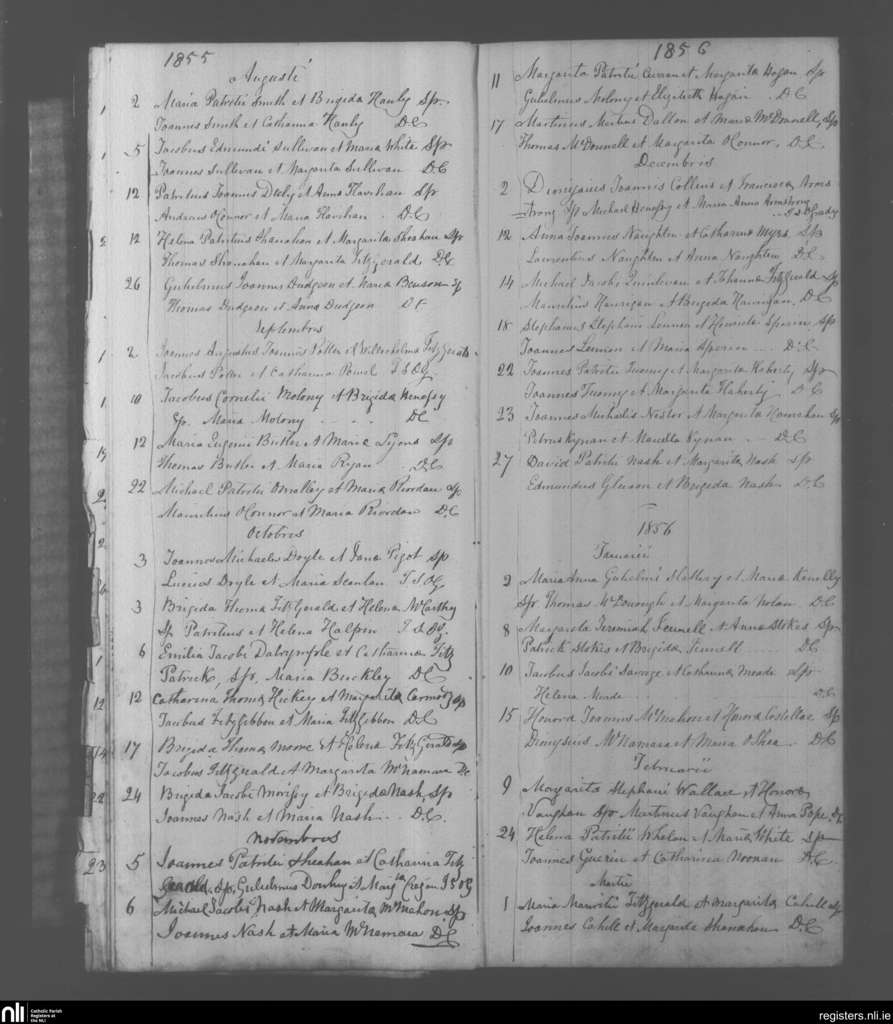 1855
Augusti
2 Maria Patritii Smith et Brigida Hanly Sps.
Joannes Smith et Catharina Hanly D.C
5 Jacobus Edmundi Sullivan et Maria White Sps
Joannes Sullivan et Margarita Sullivan D.C
12 Patritius Joannes et Anna Sps
Andreas OConnor et Maria D.C
12 Helena Patritius Shanahan et Margarita Sheehan Sps
Thomas Shanahan et Margarita Fitzgerald D.C
26 Gulielmus Joannis Dudgeon et Maria Benson Sp
Thomas Dudgeon et Anna Dudgeon D.C
Septembris
2 Joannes Augustus Joannis Potter et Wilhelmina Fitzgerald
Jacobus Potter et Catharina Powel T S OG
10 Jacobus Cornelii Molony et Brigida
Sp. Maria Molony DC
12 Maria Eugenii Butler et Maria Lyons Sps
Thomas Butler et Maria Ryan D.C
22 Michael Patritii Omalley et Maria Riordan Sp
Mauritius OConnor et Maria Riordan D.C
Octobris
3 Joannes Michaelis Doyle et Jana Pigot Sp
Lucius Doyle et Maria Scanlan T S OG
3 Brigida Thoma FitzGerald et Helena McCarthy
Sp. Patritius et Helena Halpin T S OG.
6 Emilia Jacobi Dalrymple et Catharina Fitz
Patrick, Sps. Maria Buckley DC
12 Catharina Thoma Hickey et Margarita Carmody Sp
Jacobus Fitzgibbon et Maria Fitzgibbon D.C
17 Brigida Thoma Moore et Helena FitzGerald Sp
Jacobus Fitzgerald et Margarita McNamara DC
24 Brigida Jacobi et Brigida Nash, Sps
Joannes Nash et Maria Nash D.C.
Novembris
5 Joannes Patritii Sheahan et Catharina Fitz
Gerald, Sp, Gulielmus et T S OG
6 Michael Jacobi Nash et Margarita McMahon Sp
Joannes Nash et Maria McNamara D.C
1856
11 Margarita Patritii Curran et Margarita Hogan Sp
Gulielmus Molony et Elizabeth Hogan D.C
17 Martinus Dallon et Maria McDonnell, Sp
Thomas McDonnell et Margarita OConnor. D.C.
Decembris
2 Dionysius Joannis Collins et Francisca Arms
strong Sp Michael et Maria Anna Armstrong
T S OGrady
12 Anna Joannes Naughten et Catharina Sps
Laurentius Naughten et Anna Naughten D.C
14 Michael Jacobi Quinlivan et Johanna Fitzgerald Sp
Mauritius Hannigan et Brigida Hannigan. D.C
18 Stephanus Stephani Lennon et Spearin Sp
Joannes Lennon et Maria Spearin D.C.
22 Joannes Patritii Twomy et Margarita Flaherty Sps
Joannes Twomy et Margarita Flaherty D.C
23 Joannes Michaelis Nestor et Margarita Sp
Petrus Kynan et Kynan D.C
27 David Patritii Nash et Margarita Nash Sp
Edmundus Gleeson et Brigida Nash D.C
1856
Januarii
2 Maria Anna Gulielmi Slattery et Maria Kenelly
Sps Thomas McDonough et Margarita Nolan D.C
8 Margarita Jeremiah Fennell et Anna Stokes Sp
Patrick Stokes et Brigida Fennell D.C
10 Jacobus Jacobi Savage et Catharina Meade Sps
Helena Meade D.C
15 Honora Joannes McMahon et Honora Costelloe Sp
Dionysius McNamara et Maria OShea. D.C
Februarii
9 Margarita Stephani Wallace et Honora
Vaughan Sps Martinus Vaughan et Anna Pope. D.C
24 Helena Patritii Whelan et Maria White Sp
Joannes Guerin et Catharina Noonan D.C.
Martii
1 Maria Mauritii Fitzgerald et Margarita Cahill Sp
Joannes Cahill et Margarita Shanahan D.C
nli
Catholic Parish
Registers at
the NLI
registers.nli.ie